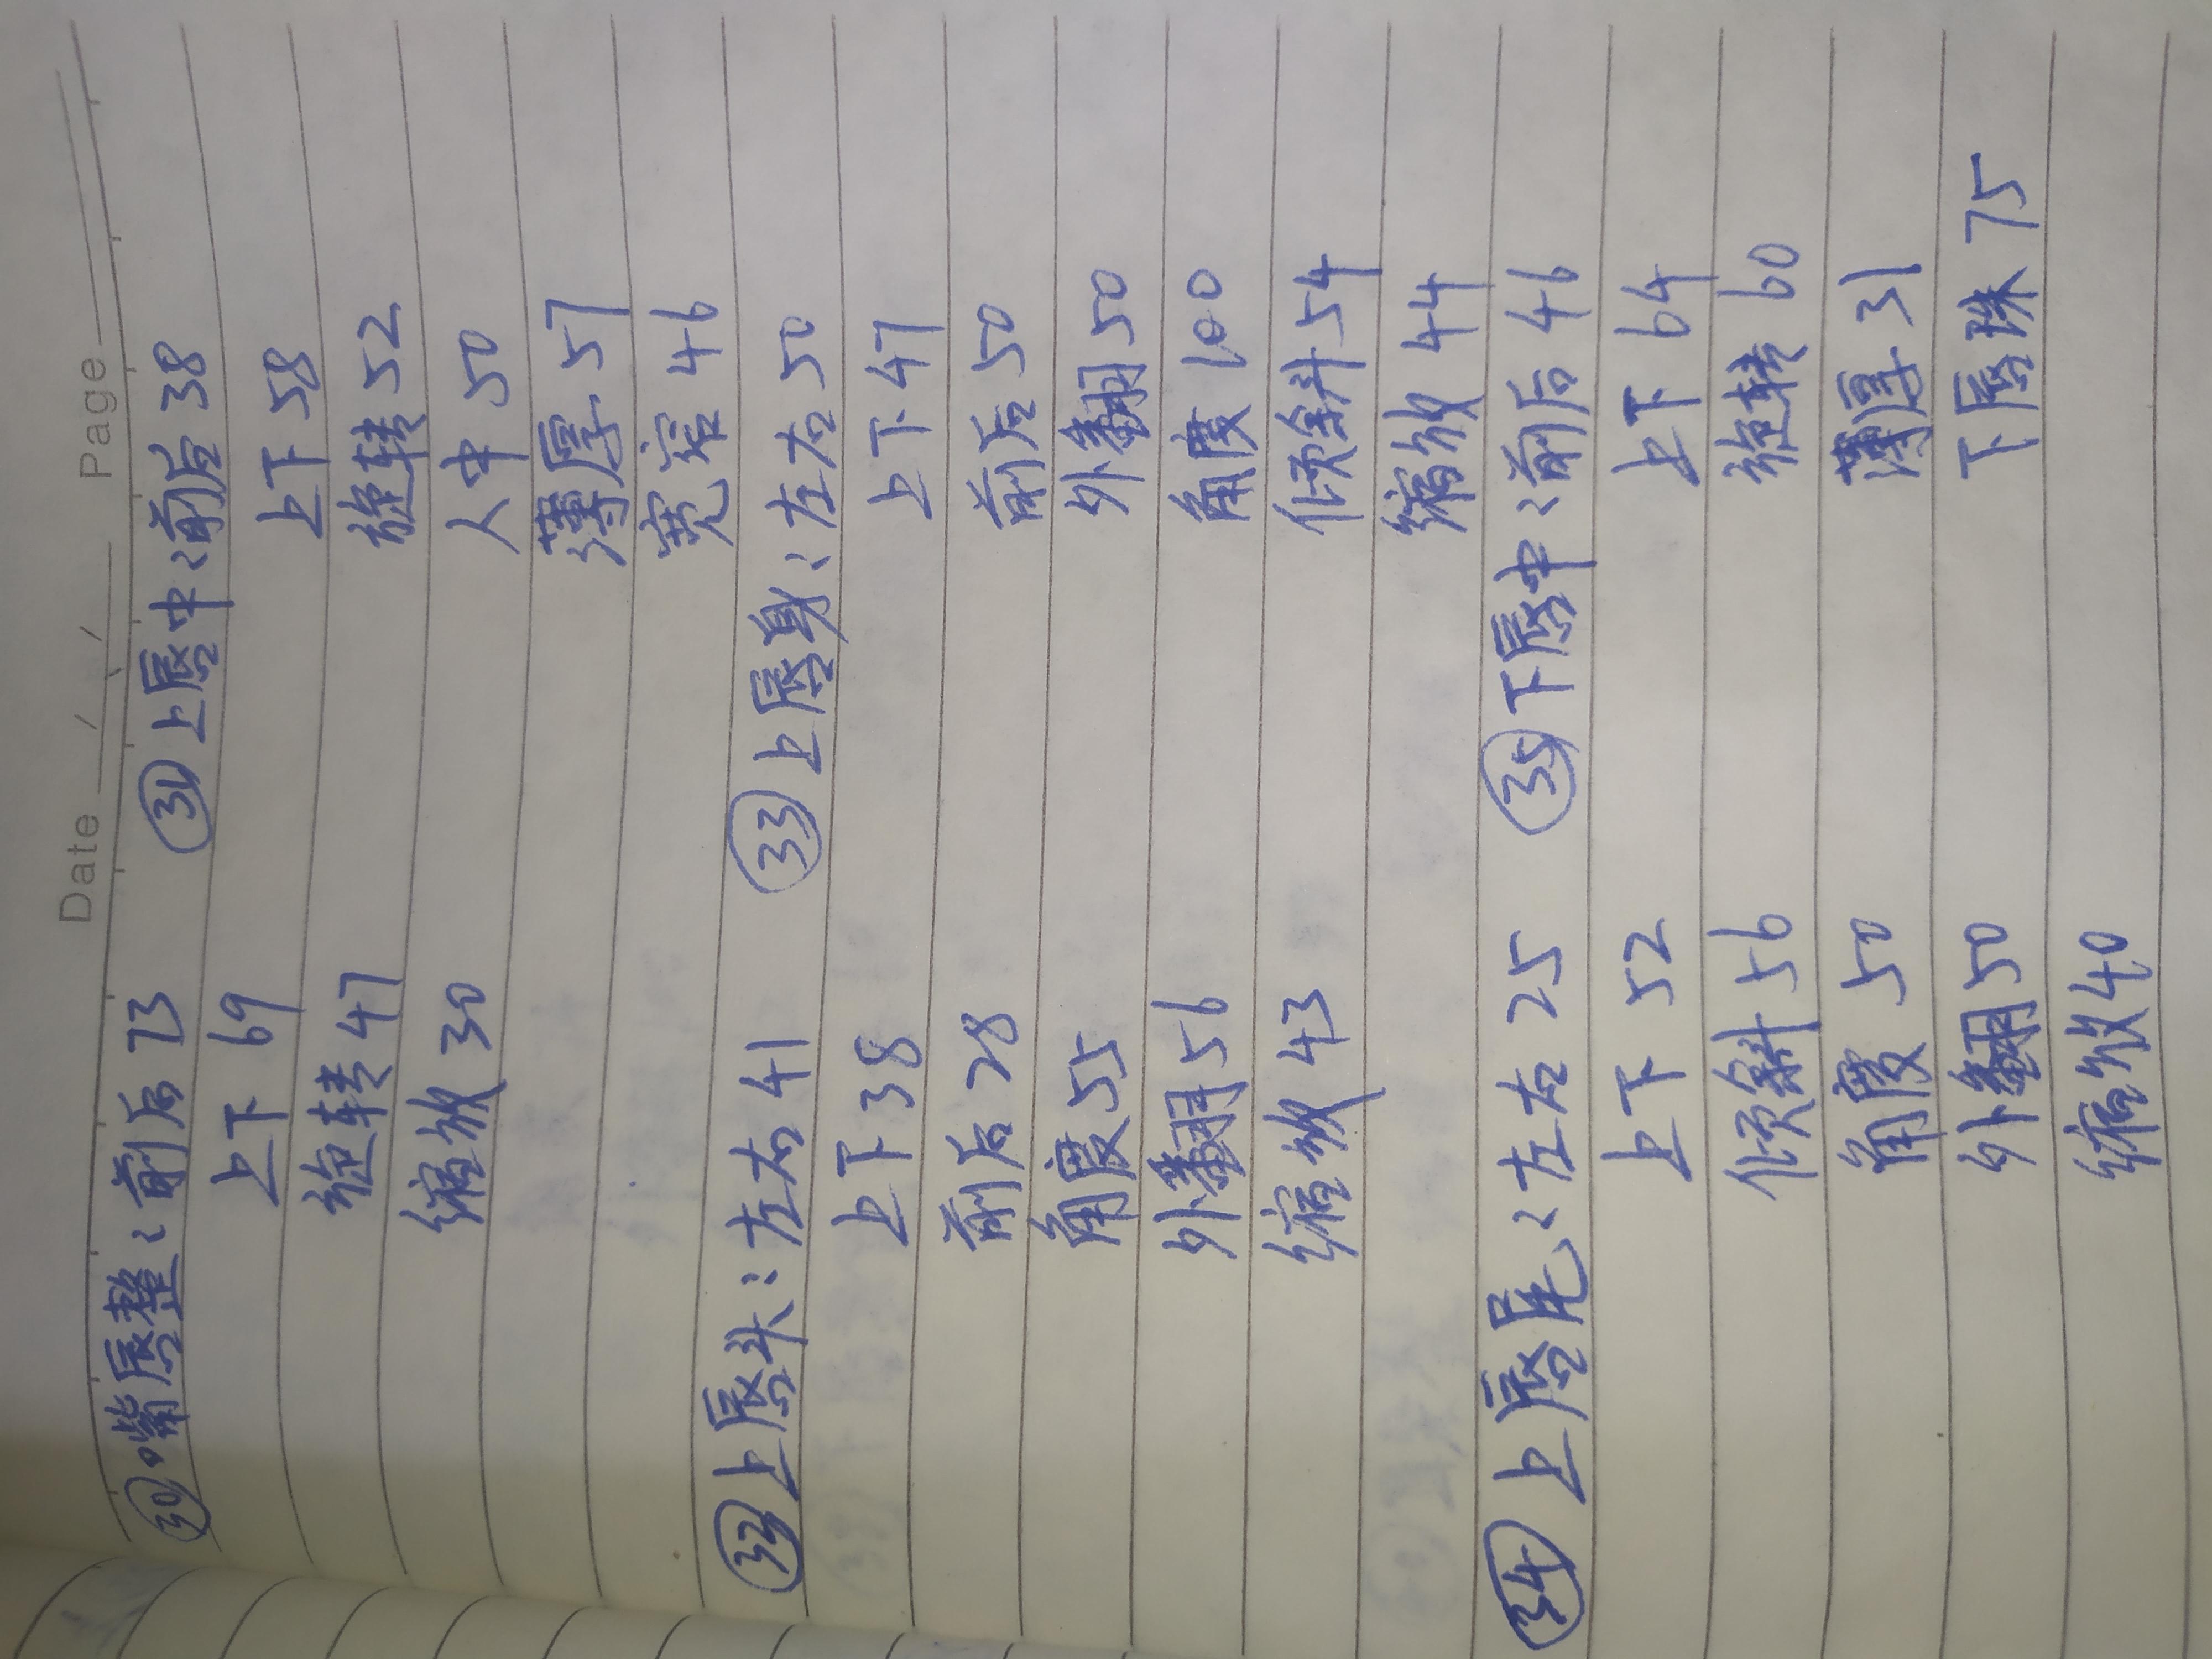 Date / / Page
㉚嘴唇整：前后 73 ㉛上唇中：前后 38
上下 69 上下 58
旋转 47 旋转 52
缩放 30 人中 50
薄厚 57
宽窄 46
㉜上唇头：左右 41 ㉝上唇身：左右 50
上下 38 上下 47
前后 28 前后 50
角度 55 外翻 50
外翻 56 角度 100
缩放 43 倾斜 54
缩放 44
㉞上唇尾：左右 25 ㉟下唇中：前后 46
上下 52 上下 64
倾斜 56 旋转 60
角度 50 薄厚 31
外翻 50 下唇珠 75
缩放 40